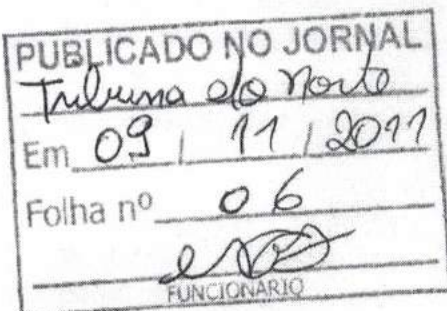 PUBLICADO NO JORNAL
Tribuna do Norte
Em 09 / 11 / 2011
Folha nº 06
FUNCIONÁRIO